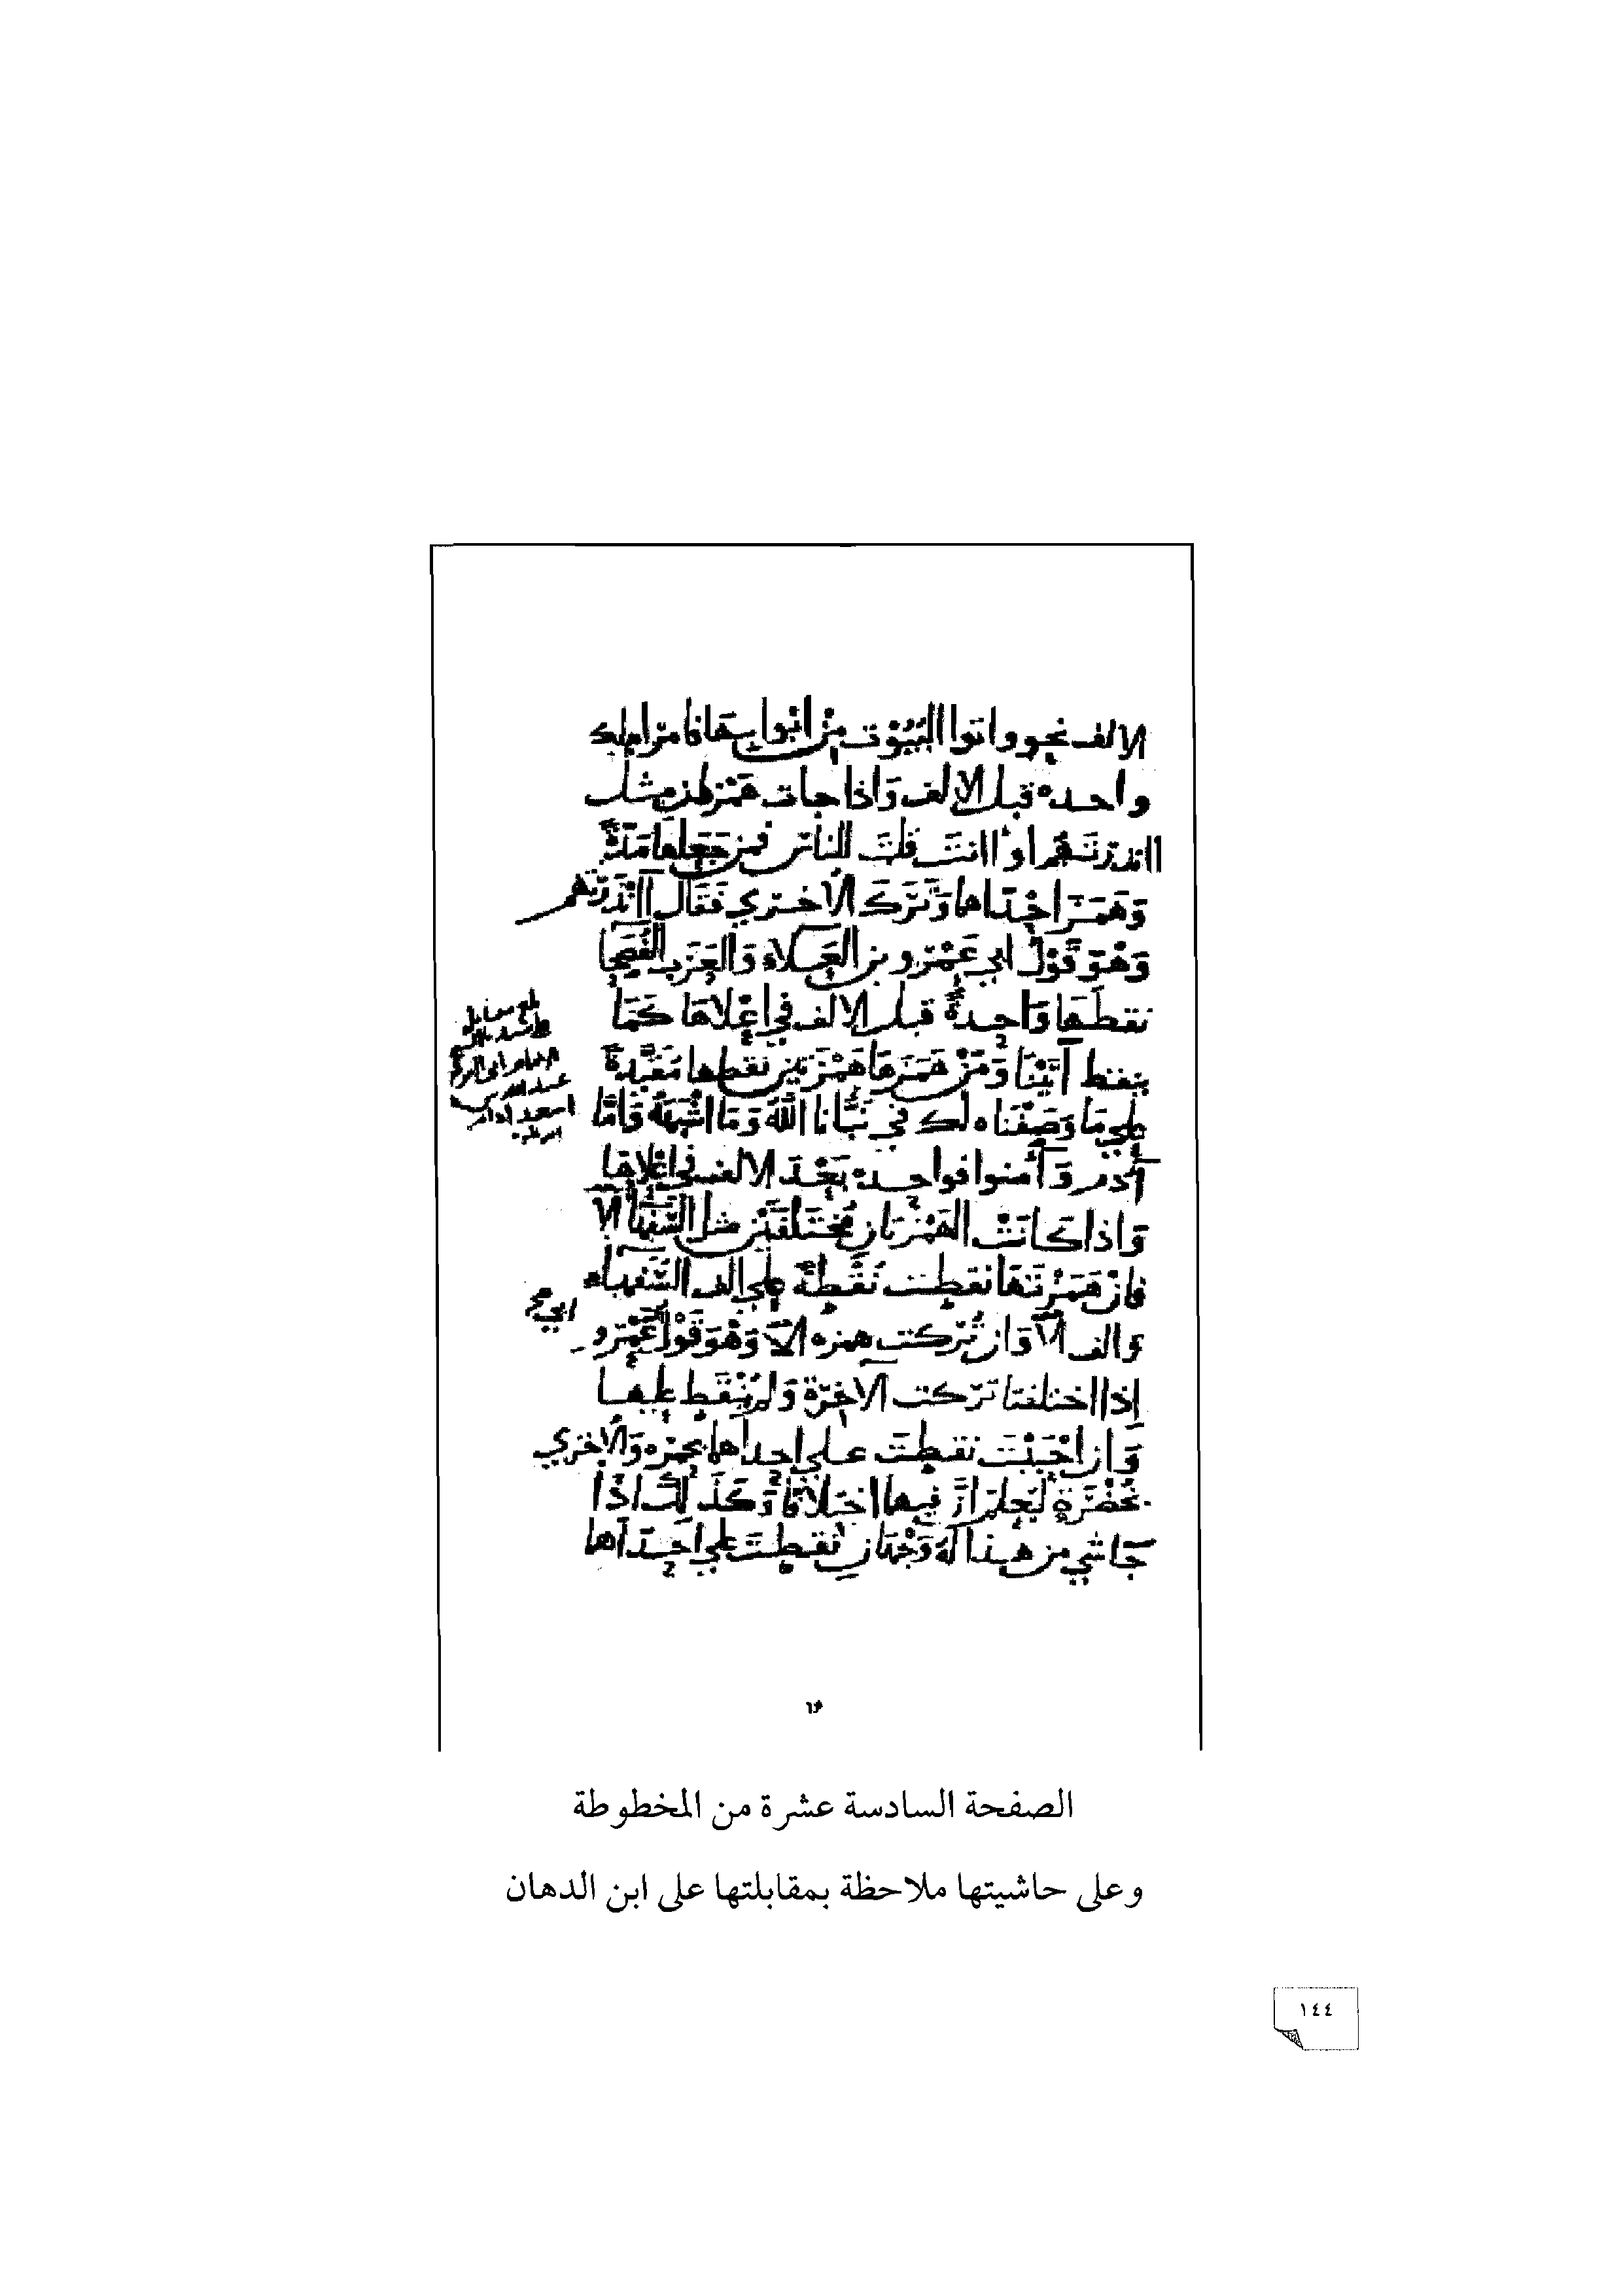 الالف نحو واتوا البُيُوت مِنْ ابْوابِهَا نا مر امامك
واحده قبل الالف وَاذا جات هَمْزتان مثل
اانذرتَهُم اوْ اانتَ قلتَ للناس فمن جَعَلَها مَدَّةً
وَهَمَزَ احْدَاها وَتَرَكَ الأخرَي فَقَالَ آانْذَرتَهم
وَهُوَ قَوْلُ ابي عَمْرو بن العَلاء وَالعَرَب الفُصَحا
نقطَهَا وَاحِدةً قبل الالف في اعْلاهَا كَمَا
ينقط آتَيْنَا وَمَنْ هَمَزَها هَمْزَتين نقطها مُقَيَّدةً
على مَا وَصَفْنَاه لك في نَبَّانا اللهُ وَمَا اشْبَهَهُ فَامَّا
آدَم وَآمنوا فواحده بَعْدَ الالف في اعْلاها
وَاذا كَانَتْ الهَمْزتان مُختَلفَتَيْن مثل السُّفَهَآءُ ألآ
فان هَمَزْتَهَا نقطت نُقْطةً على الف السُّفهاء
والف ألآ وَان تُرَكت همزه ألا وَهُوَ قَوْلُ عَمْرو
ابي صح
إذا اختلفتا تَرَكت الآخِرَةَ وَلم يُنْقَط عليها
وَان احْبَبْتَ نقطتَ على احداها بحمره وَالاخرَي
بخُضْرَةٍ ليُعلم انَّ فيها اختلافًا وَكَذَلِكَ اذَا
جَا شي من هَذا لَهُ وَجْهَانِ نقطت على احدَاها
بلغ مقابله
١٦
الصفحة السادسة عشرة من المخطوطة
وعلى حاشيتها ملاحظة بمقابلتها على ابن الدهان
١٤٤